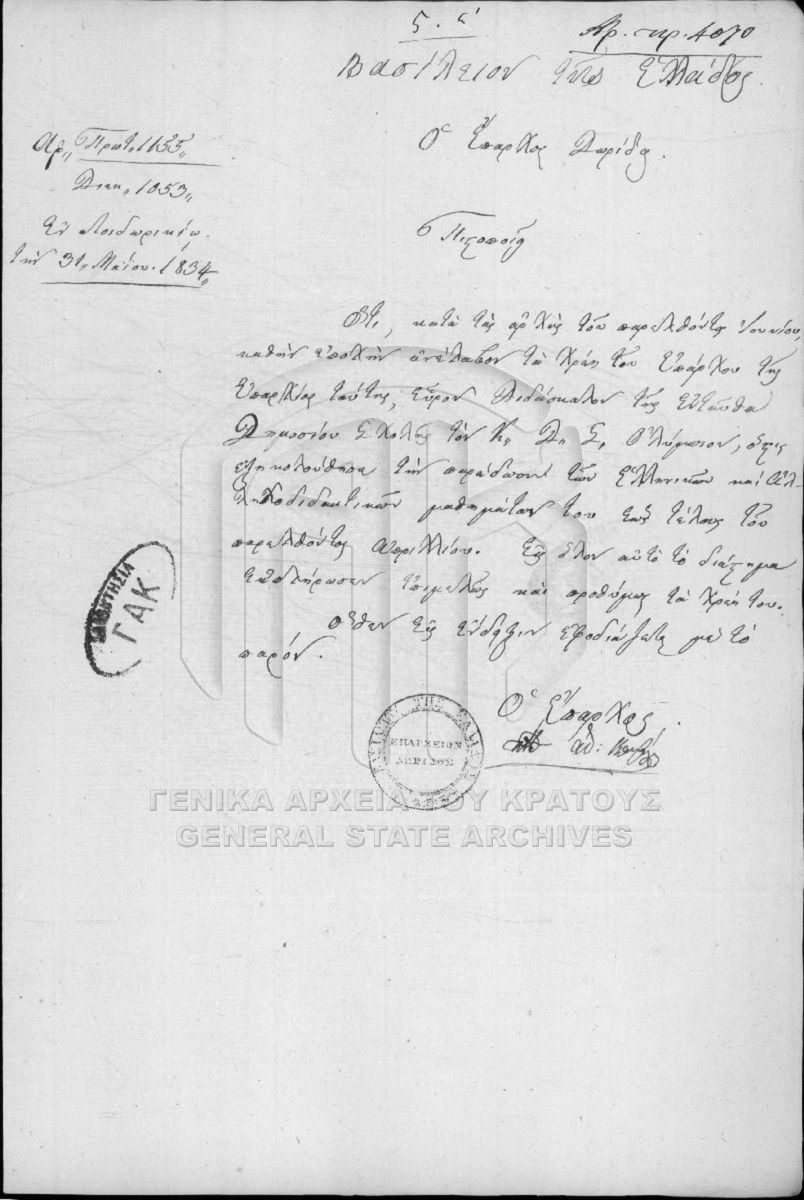 5. αʹ
Αρ. πρ. 4070
Βασίλειον τῆς Ἑλλάδος.
Αρ„ Πρωτ. 1155„
Διεκ„ 1053„
Ἐν Λοιδωρικίῳ.
τὴν 31„ Μαΐου. 1834„
Ὁ Ἔπαρχος Δωρίδος.
Πιςοποιεῖ
Ὅτι, κατὰ τὰς ἀρχὰς τοῦ παρελθόντος Ἰουνίου,
καθ' ἣν ἐποχὴν ἀνέλαβον τὰ χρέη τοῦ Ἐπάρχου τῆς
Ἐπαρχίας ταύτης, εὗρον Διδάσκαλον τῆς ἐνταῦθα
Δημοσίου Σχολῆς τὸν Κ„ Δ„ Σ„ Ὀλύμπιον, ὅςις
ἐξηκολούθησε τὴν παράδωσιν τῶν Ἑλληνικῶν καὶ Ἀλ-
ληλοδιδακτικῶν μαθημάτων του ἕως τέλους τοῦ
παρελθόντος Ἀπριλλίου. Εἰς ὅλον αὐτὸ τὸ διάςημα
ἐκπλήρωσεν ἐπιμελῶς καὶ προθύμως τὰ χρέη του.
Ὅθεν εἰς ἔνδειξιν ἐφοδιάζεται μὲ τὸ
παρόν.
Ὁ Ἔπαρχος.
ΕΠΑΡΧΕΙΟΝ
ΔΩΡΙΔΟΣ
ΓΑΚ
ΓΕΝΙΚΑ ΑΡΧΕΙΑ ΤΟΥ ΚΡΑΤΟΥΣ
GENERAL STATE ARCHIVES